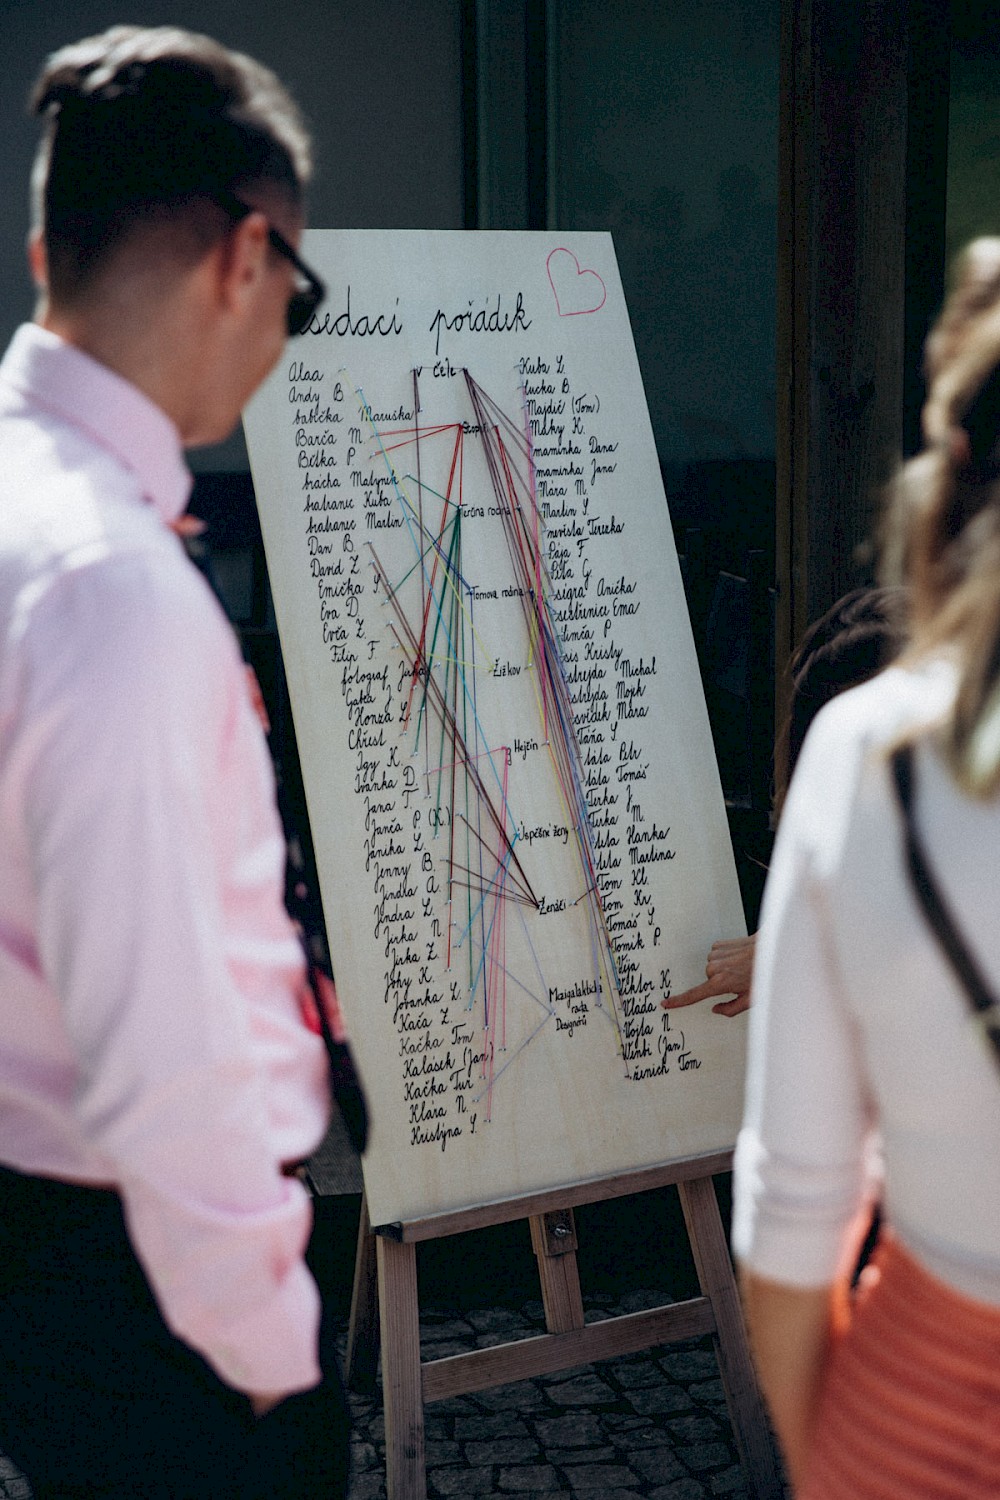 sedací pořádek
Alaa
Andy B.
babička Maruška
Barča M.
Bětka P.
brácha Matynek
bratranec Kuba
bratranec Martin
Dan B.
David Z.
Emička S.
Eva D.
Evča Z.
Filip F.
fotograf Jirka
Gabča J.
Honza L.
Chřest
Iggy K.
Ivanka D.
Jana T.
Janča P. (K.)
Janika L.
Jenny B.
Jindra A.
Jindra L.
Jirka N.
Jirka Z.
Johy K.
Jovanka L.
Kača Z.
Kačka Tom
Kalásek (Jan)
Kačka Tur
Klára N.
Kristýna S.
v čele
Stopři
Terčina rodina
Tomova rodina
Žižkov
z Hejčín
Úspěšné ženy
Ženáči
Mezigalaktická
rada
Designérů
Kuba L.
Lucka B.
Majdič (Tom)
Maky K.
maminka Dana
maminka Jana
Mára M.
Martin S.
nevěsta Terezka
Pája F.
Péťa G.
ségra Anička
sestřenice Ema
Simča P.
sis Kristy
strejda Michal
strejda Mojek
svědek Mára
Táňa S.
táta Petr
táta Tomáš
Terka J.
Terka M.
teta Hanka
teta Martina
Tom Kl.
Tom Kr.
Tomáš S.
Tomik P.
Véja
Viktor K.
Vláďa
Vojta N.
Venbi (Jan)
ženich Tom